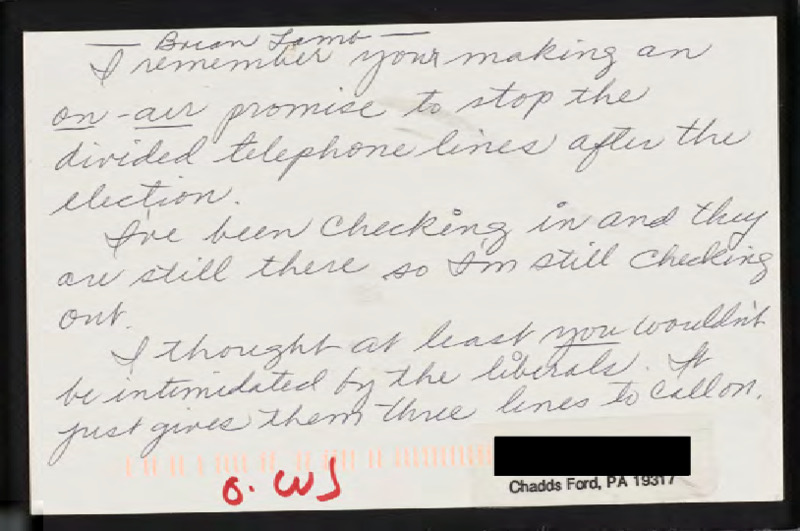 — Brian Lamb —
I remember your making an
on-air promise to stop the
divided telephone lines after the
election.
I've been checking in and they
are still there so I'm still checking
out.
I thought at least you wouldn't
be intimidated by the liberals. It
just gives them three lines to call on.
O. WJ
Chadds Ford, PA 19317